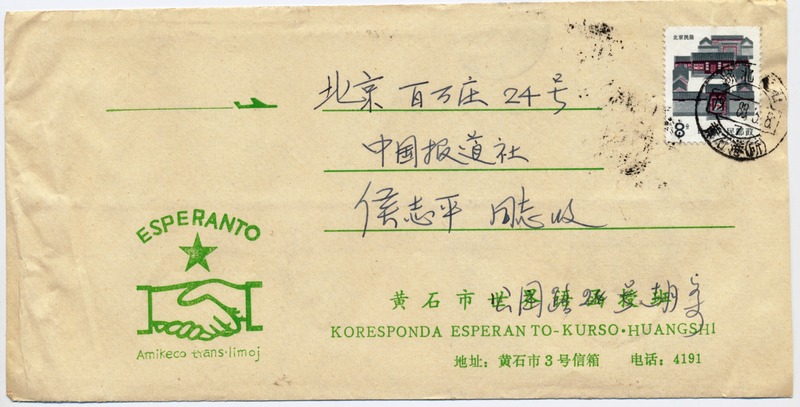 北京民居
8分
北京 百万庄 24号
中国报道社
侯志平 同志收
ESPERANTO
Amikeco trans limoj
黄石市世界语函授班
公园路
KORESPONDA ESPERANTO-KURSO·HUANGSHI
地址：黄石市3号信箱 电话：4191